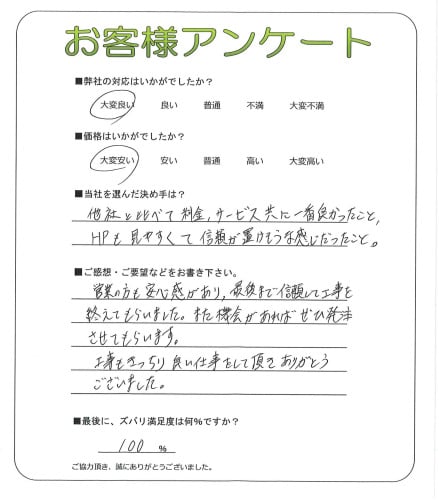 お客様アンケート
■弊社の対応はいかがでしたか?
大変良い 良い 普通 不満 大変不満
■価格はいかがでしたか?
大変安い 安い 普通 高い 大変高い
■当社を選んだ決め手は?
他社と比べて料金,サービス共に一番良かったこと,
HPも見やすくて信頼が置けそうな感じだったこと。
■ご感想・ご要望などをお書き下さい。
営業の方も安心感があり,最後まで信頼して工事を
終えてもらいました。また機会があればぜひ発注
させてもらいます。
工事もきっちり良い仕事をして頂きありがとう
ございました。
■最後に、ズバリ満足度は何%ですか?
100 %
ご協力頂き、誠にありがとうございました。